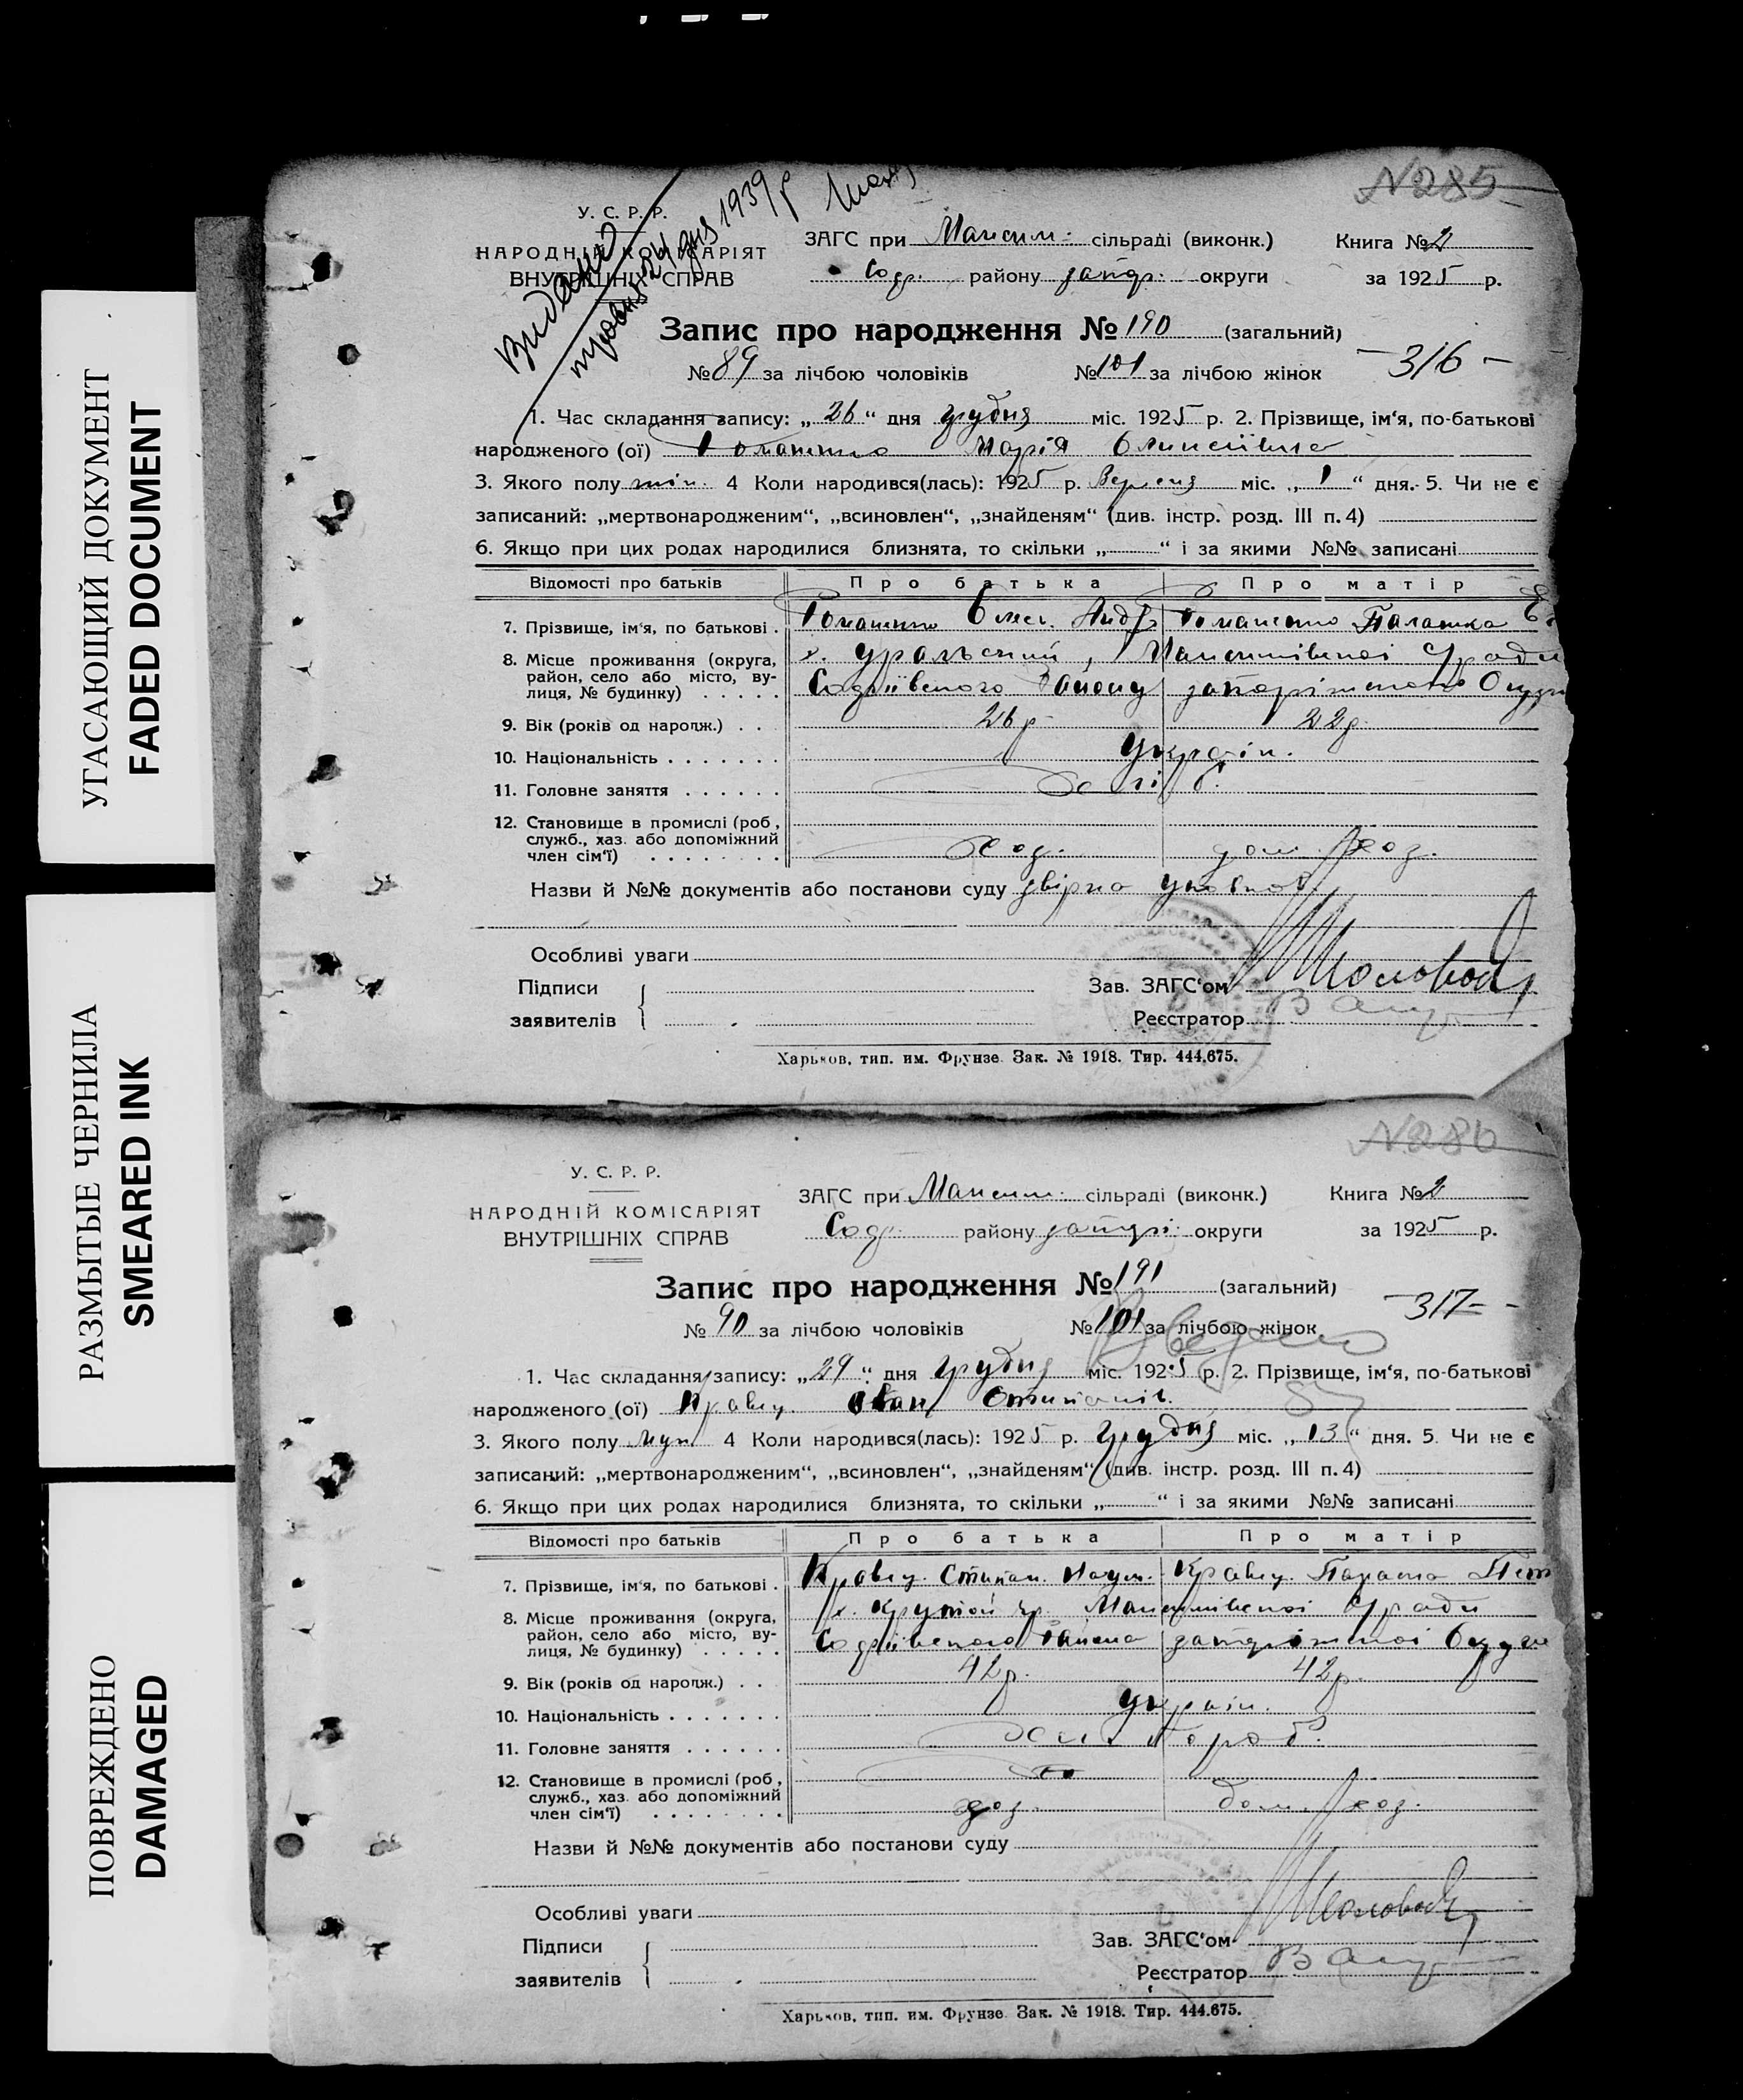 УГАСАЮЩИЙ ДОКУМЕНТ
FADED DOCUMENT
РАЗМЫТЫЕ ЧЕРНИЛА
SMEARED INK
ПОВРЕЖДЕНО
DAMAGED
N285
Видано
24 дня 1939 р
У. С. Р. Р.
НАРОДНІЙ КОМІСАРІЯТ
ВНУТРІШНІХ СПРАВ
ЗАГС при Максим. сільраді (виконк.) Книга № 2
Соф. району запор. округи за 1925 р.
Запис про народження № 190 (загальний)
№ 89 за лічбою чоловіків № 101 за лічбою жінок - 316 -
1. Час складання запису: „26“ дня грудня міс. 1925 р. 2. Прізвище, ім'я, по-батькові
народженого (ої) Романенко Марія Олексіївна
3. Якого полу жін. 4 Коли народився(лась): 1925 р. Вересня міс. „1“ дня. 5. Чи не є
записаний: „мертвонародженим“, „всиновлен“, „знайденям“ (див. інстр. розд. III п. 4)
6. Якщо при цих родах народилися близнята, то скільки „ “ і за якими №№ записані
Відомості про батьків Про батька Про матір
7. Прізвище, ім'я, по батькові . Романенко Олек. Андр. Романенко Палажка
8. Місце проживання (округа, район, село або місто, вулиця, № будинку) х. Уральский, Максимівської С/ради
Софіївського Району запорізького Округи
9. Вік (років од народж.) . . 26 р. 22 р.
10. Національність . . . . . . . Україн.
11. Головне заняття . . . . . .
12. Становище в промислі (роб., служб., хаз. або допоміжний член сім'ї) . . . . . . . . хоз. дом. хоз.
Назви й №№ документів або постанови суду звірка
Особливі уваги
Підписи заявителів
Зав. ЗАГС'ом
Реєстратор
Харьков, тип. им. Фрунзе. Зак. № 1918. Тир. 444.675.
N286
У. С. Р. Р.
НАРОДНІЙ КОМІСАРІЯТ
ВНУТРІШНІХ СПРАВ
ЗАГС при Максим. сільраді (виконк.) Книга № 2
Соф. району запорі. округи за 1925 р.
Запис про народження № 191 (загальний)
№ 90 за лічбою чоловіків № 101 за лічбою жінок - 317 -
1. Час складання запису: „29“ дня грудня міс. 1925 р. 2. Прізвище, ім'я, по-батькові
народженого (ої) Кравец. Іван Степанів.
3. Якого полу муж 4 Коли народився(лась): 1925 р. Грудня міс. „13“ дня. 5. Чи не є
записаний: „мертвонародженим“, „всиновлен“, „знайденям“ (див. інстр. розд. III п. 4)
6. Якщо при цих родах народилися близнята, то скільки „ “ і за якими №№ записані
Відомості про батьків Про батька Про матір
7. Прізвище, ім'я, по батькові . Кравец. Степан. Наум. Кравец. Параска Пет
8. Місце проживання (округа, район, село або місто, вулиця, № будинку) х. Крутой Яр. Максимівської С/ради
Софіївського Району запорізької Округи
9. Вік (років од народж.) . . 42 р. 42 р.
10. Національність . . . . . . . Україн.
11. Головне заняття . . . . . . хлібороб.
12. Становище в промислі (роб., служб., хаз. або допоміжний член сім'ї) . . . . . . . . хоз. дом. хоз.
Назви й №№ документів або постанови суду
Особливі уваги
Підписи заявителів
Зав. ЗАГС'ом
Реєстратор
Харьков, тип. им. Фрунзе. Зак. № 1918. Тир. 444.675.